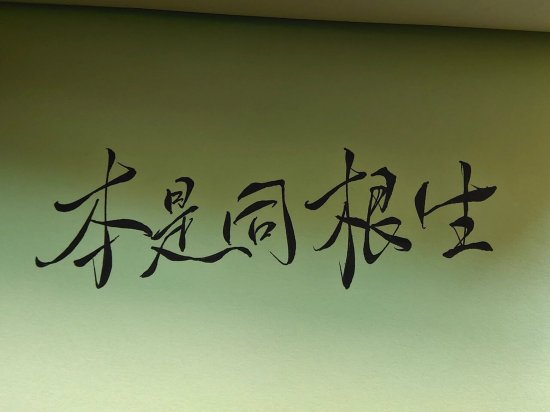 本是同根生